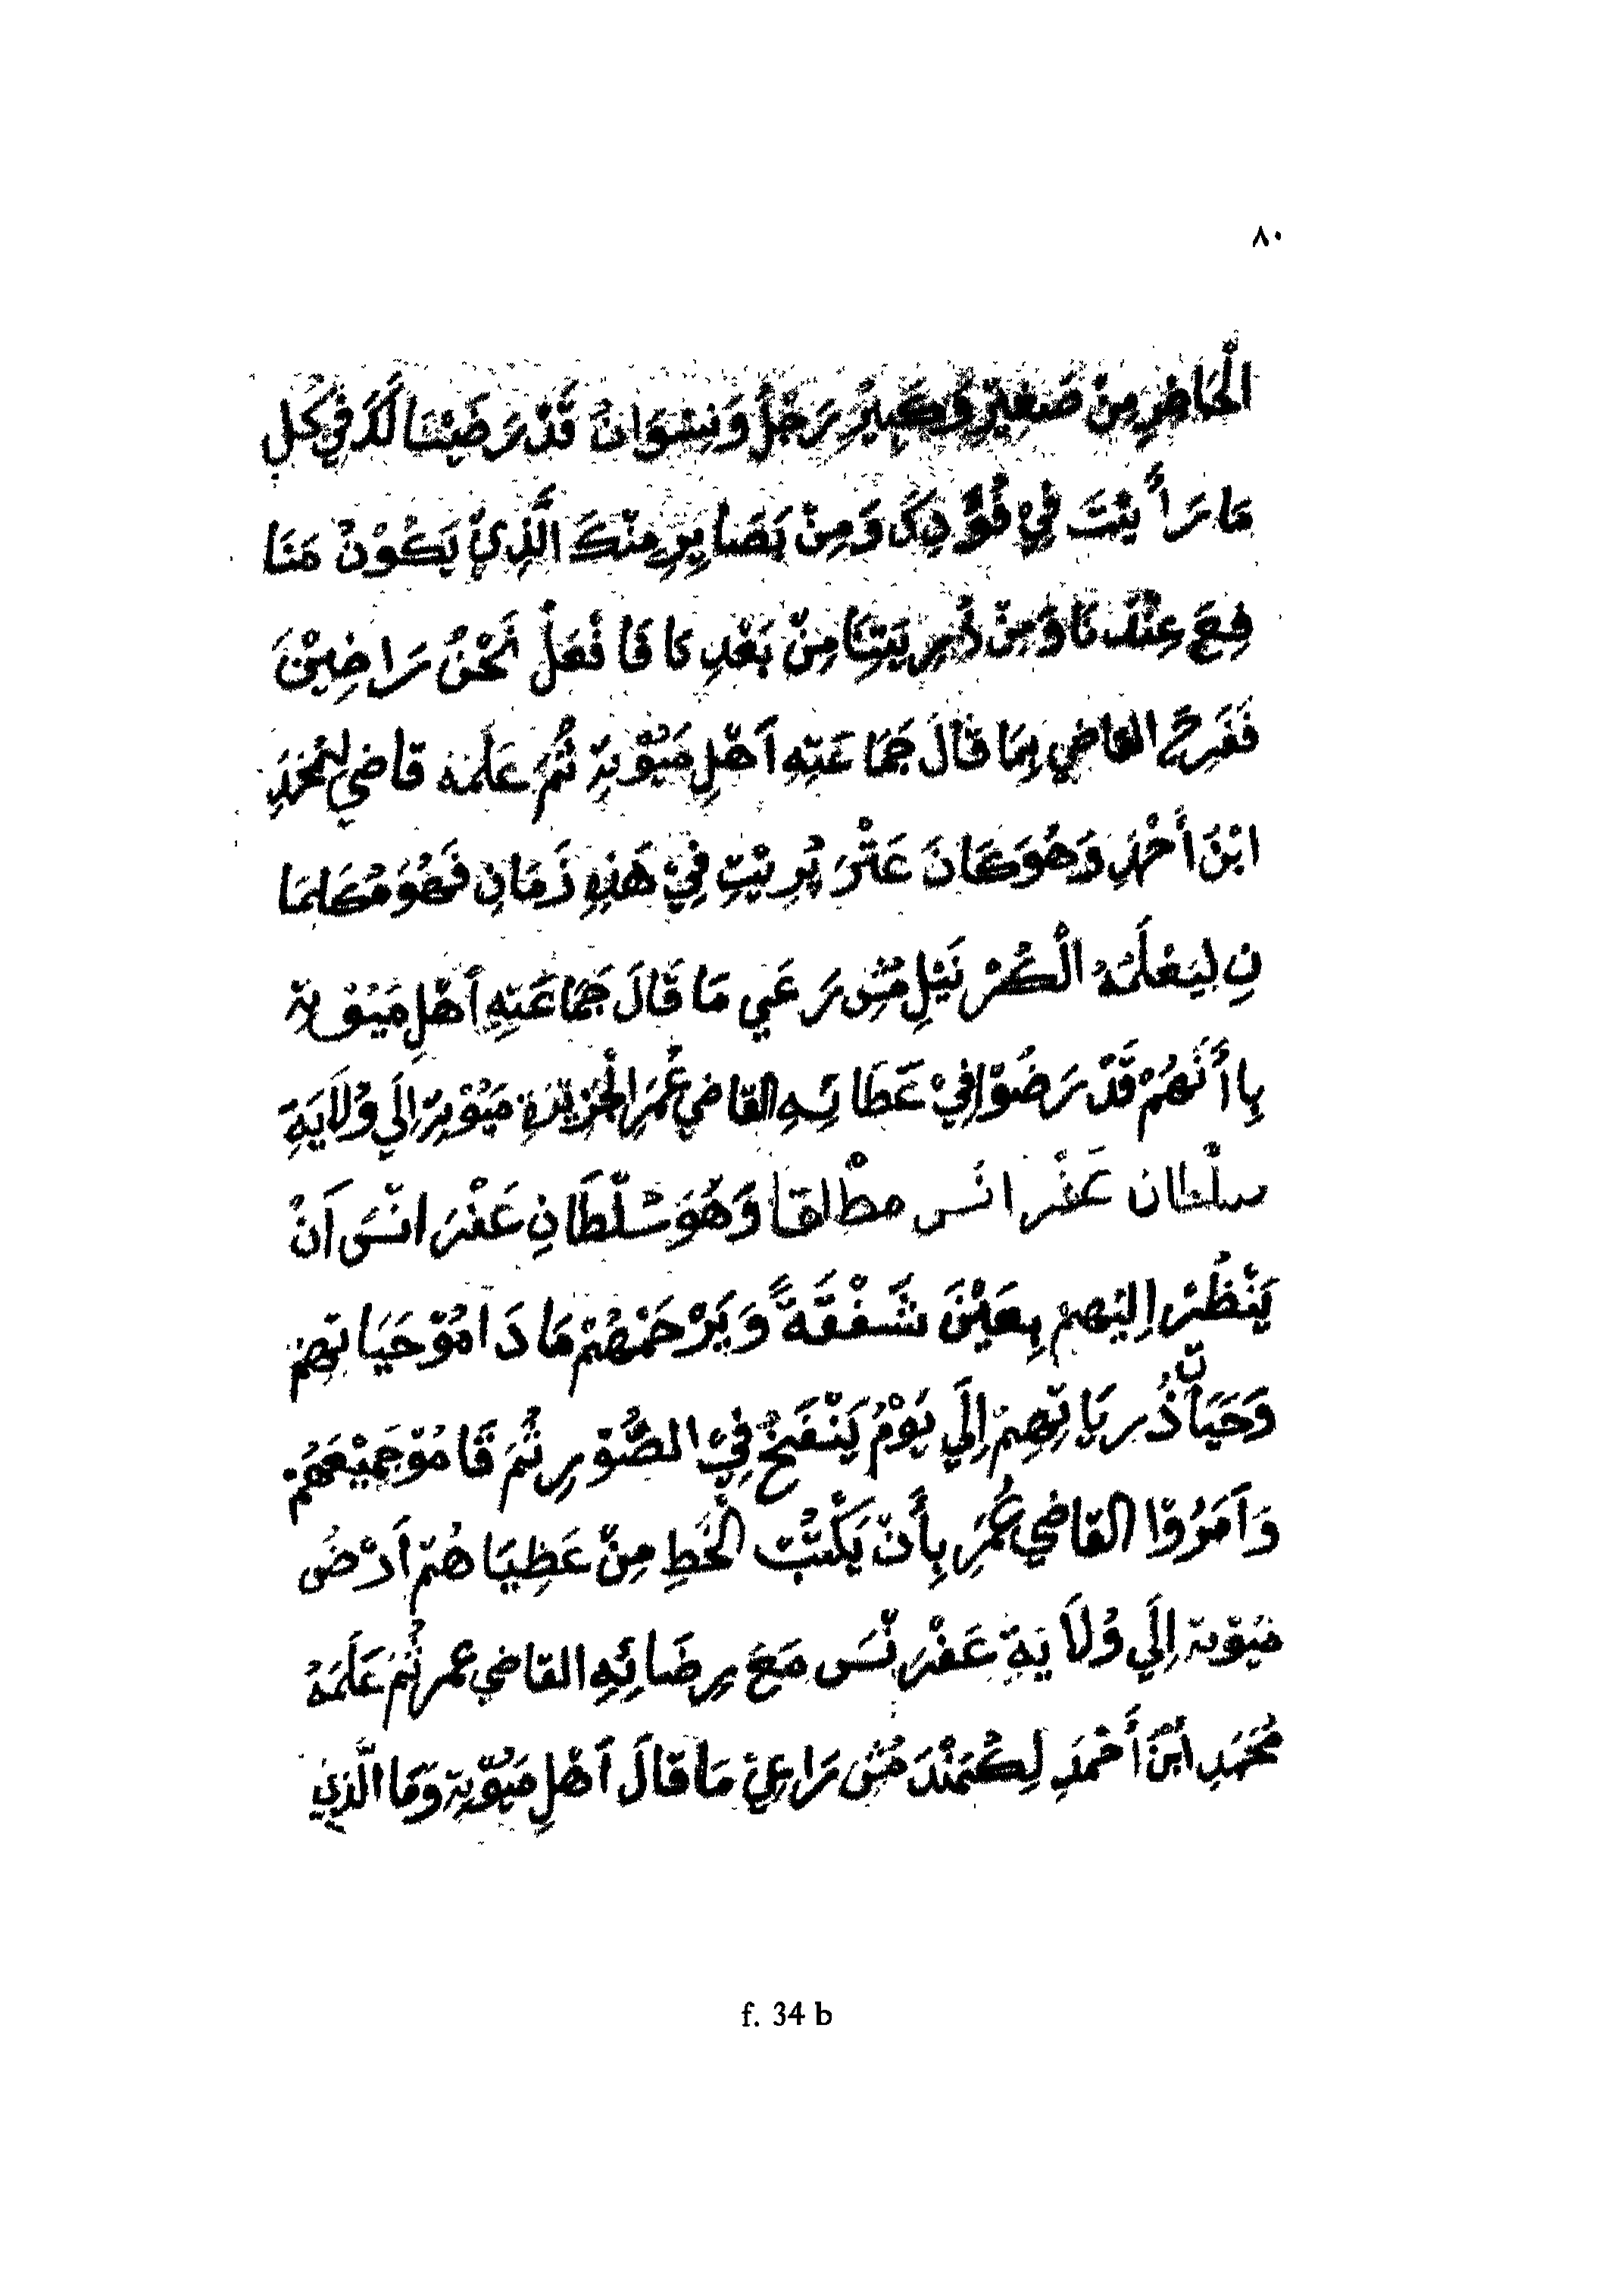 ٨٠
الْحَاضِرِ مِنْ صَغِيرٌ وَكَبِيرٌ رَجُلٌ وَنِسْوَانٌ قَدْ رَضَيْنَا لَكَ فِي كُلِ
مَا رَأَيْتَ فِيْ فُؤَدِكَ وَمِنْ بَصَايِرِ مِنْكَ الَّذِيْ يَكُوْنُ مَنَا
فِعَ عِنْدَنَا وَمِنْ ذُرِيَتِنَا مِنْ بَعْدِنَا فَافْعَلْ نَحْنُ رَاضِيْنَ
فَفَرِحَ القاضي بِمَا قَالَ جَمَاعَتِهِ اَهْلِ مَيُوْتِةِ ثُمَ عَلَمَهُ قاضي لمُحَمَدِ
ابْنَ أَحْمَدِ وَهُوَ كَانَ عَنْرَ پُرِيْتِ فِيْ هَذِهِ زَمَانِ فَهُوَ مُكَلِمَا
نِ لِيَعْلَمُهُ الْكُرْنَيْلِ مُسْ رَعَي مَا قَالَ جَمَاعَتِهِ أَهْلِ مَيُوْتة
بِاأَنَهُمْ قَدْ رَضُوْا فِيْ عَطَائِهِ القاضي عُمَرِ الْجَزِيْرَةِ مَيُوْتِة اِلَي وُلَايَةِ
سلْطان عَفْرانَس مطْلقا وَهُوَ سُلْطَانِ عَفْرَانْسَ اَنْ
يَنْظُرْ اِليْهِمْ بِعَيْنَ شَفْقَةً وَيَرْحَمْهُمْ مَا دَامُوْ حَيَاتِهِمْ
وَحَيَاتْ ذُرِيَاتِهِمْ اِلَي يَوْمُ يَنْفَخُ فِيْ الصُّوْرِ ثُمَ قَامُوْ جَمِيْعَهُمْ
وَاَمَرُوْا القاضي عُمَرِ بِأَنْ يَكْتُبْ الْخَطِ مِنْ عَطِيَاهُمْ اَرْضُ
مَيُوْتة اِلَي وُلَايَةِ عَفْرَنْسَ مَعَ رِضَائِهِ القاضي عمر ثُمَ عَلَمَهُ
مُحَمَدِ ابْنَ أَحْمَدِ لِكُمَنْدَ مُسْ رَاعِيْ مَا قَالَ اَهْلِ مَيُوْتِة وَمَا الَّذِيْ
f. 34 b